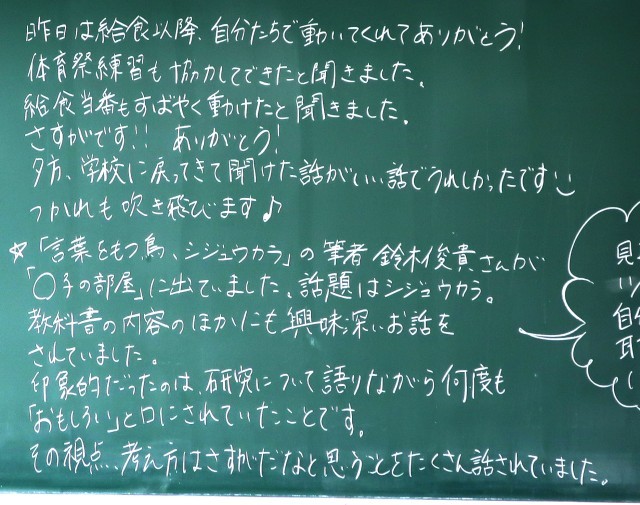 昨日は給食以降、自分たちで動いてくれてありがとう!
体育祭練習も協力してできたと聞きました。
給食当番もすばやく動けたと聞きました。
さすがです!! ありがとう!
夕方、学校に戻ってきて聞けた話がいい話でうれしかったです
つかれも吹き飛びます♪
☆「言葉をもつ鳥、シジュウカラ」の筆者 鈴木俊貴さんが
「〇子の部屋」に出ていました。話題はシジュウカラ。
教科書の内容のほかにも興味深いお話を
されていました。
印象的だったのは、研究について語りながら何度も
「おもしろい」と口にされていたことです。
その視点、考え方はさすがだなと思うことをたくさん話されていました。
見
自分